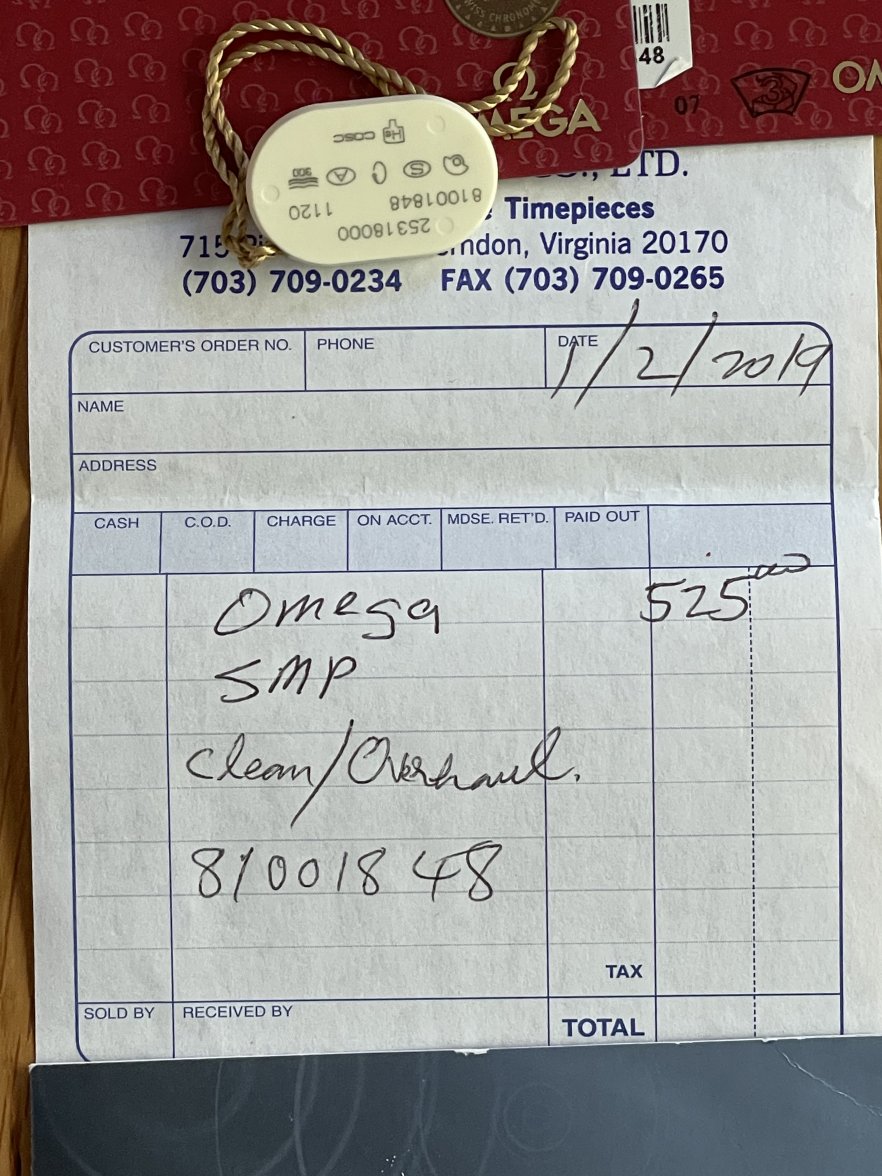 SWISS CHRONOM
48
07
3
OM
OMEGA
COSC
He
A
S
300
81001848
1120
25318000
LTD.
Timepieces
715
rndon, Virginia 20170
(703) 709-0234 FAX (703) 709-0265
CUSTOMER'S ORDER NO. PHONE DATE 1/2/2019
NAME
ADDRESS
CASH C.O.D. CHARGE ON ACCT. MDSE. RET'D. PAID OUT
Omega 525.00
SMP
Clean/Overhaul.
81001848
TAX
SOLD BY RECEIVED BY TOTAL